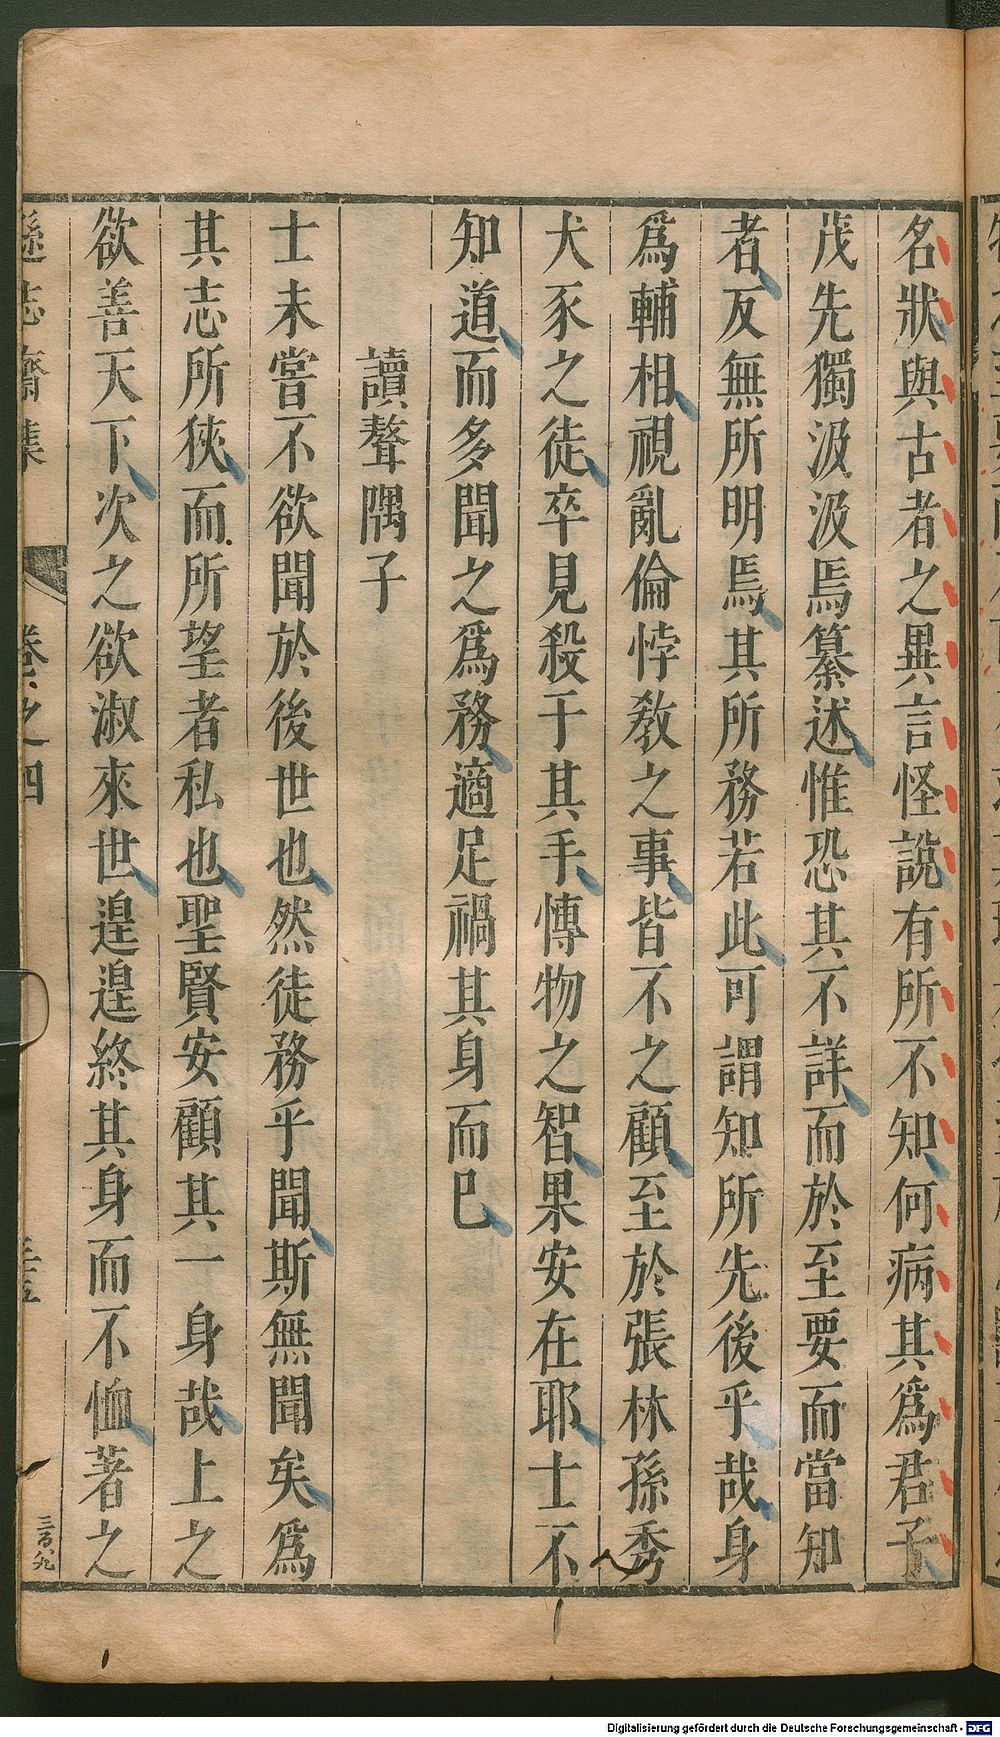 名狀與古者之異言怪說有所不知何病其爲君子
茂先獨汲汲焉纂述惟恐其不詳而於至要而當知
者反無所明焉其所務若此可謂知所先後乎哉身
爲輔相視亂倫悖教之事皆不之顧至於張林孫秀
犬豕之徒卒見殺于其手博物之智果安在耶士不
知道而多聞之爲務適足禍其身而巳
讀聱隅子
士未嘗不欲聞於後世也然徒務乎聞斯無聞矣爲
其志所狹而所望者私也聖賢安顧其一身哉上之
欲善天下次之欲淑來世遑遑終其身而不恤著之
遜志齋集 卷之四 三十五 三百八九
Digitalisierung gefördert durch die Deutsche Forschungsgemeinschaft - DFG